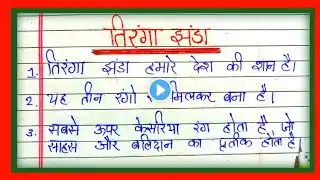 तिरंगा झंडा
1. तिरंगा झंडा हमारे देश की शान है।
2. यह तीन रंगो मिलकर बना है।
3. सबसे ऊपर केसरिया रंग होता है, जो
साहस और बलिदान का प्रतीक होता है